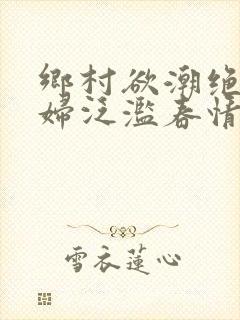 鄉村欲潮绝
婦泛濫春情
雪衣蓮心